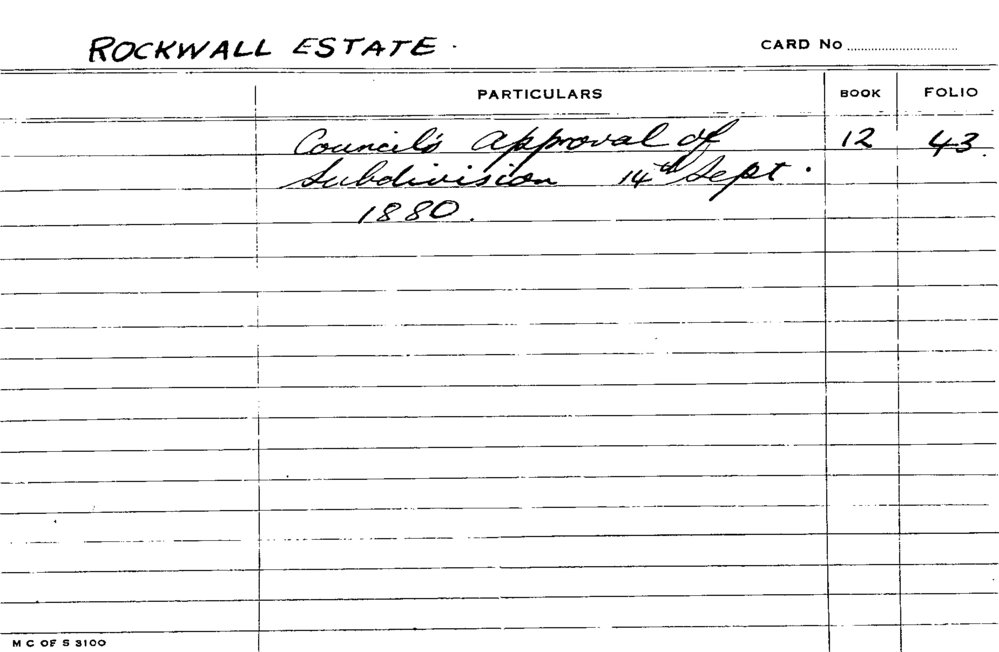 ROCKWALL ESTATE.
CARD No
PARTICULARS BOOK FOLIO
Council's approval of 12 43
Subdivision 14th Sept.
1880.
M C OF S 3100